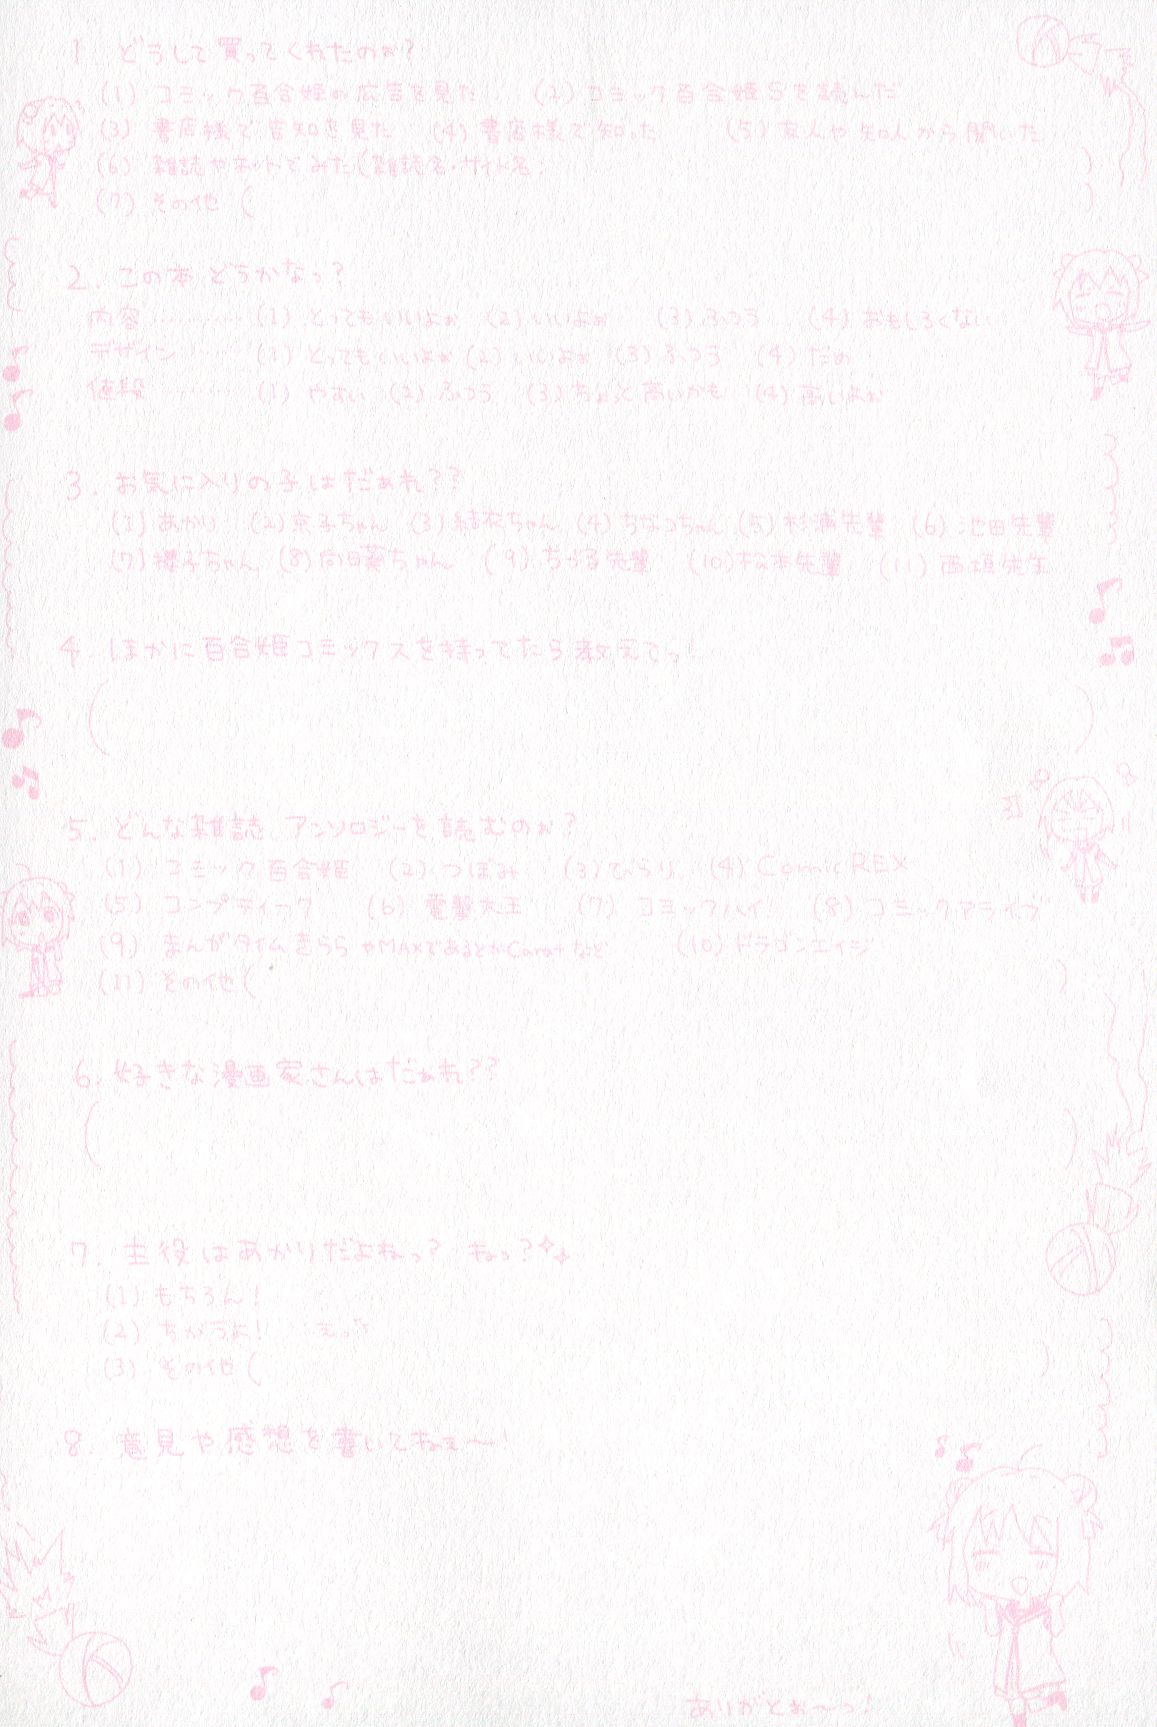 1. どうして買ってくれたのぉ?
(1) コミック百合姫の広告を見た (2) コミック百合姫Sを読んだ
(3) 書店様で告知を見た (4) 書店様で知った (5) 友人や知人から聞いた
(6) 雑誌やネットでみた(雑誌名・サイト名: )
(7) その他 ( )
2. この本どうかなっ?
内容 ………… (1) とってもいいよぉ (2) いいよぉ (3) ふつう (4) おもしろくない
デザイン …… (1) とってもいいよぉ (2) いいよぉ (3) ふつう (4) だめ
値段 ……… (1) やすい (2) ふつう (3) ちょっと高いかも (4) 高いよぉ
3. お気に入りの子はだぁれ??
(1) あかり (2)京子ちゃん (3) 結衣ちゃん (4) ちなつちゃん (5) 杉浦先輩 (6) 池田先輩
(7) 櫻子ちゃん (8) 向日葵ちゃん (9) ちづる先輩 (10) 松本先輩 (11) 西垣先生
4. ほかに百合姫コミックスを持ってたら教えてっ!
( )
5. どんな雑誌、アンソロジーを読むのぉ?
(1) コミック百合姫 (2) つぼみ (3) ひらり、 (4) Comic REX
(5) コンプティーク (6) 電撃大王 (7) コミックハイ! (8) コミックアライブ
(9) まんがタイムきららやMAXであるとかCaratなど (10) ドラゴンエイジ
(11) その他 ( )
6. 好きな漫画家さんはだぁれ??
( )
7. 主役はあかりだよねっ? ねっ?
(1) もちろん!
(2) ちがうよ!
(3) その他 ( )
8. 意見や感想を書いてねぇ〜!
ありがとぉ〜っ!